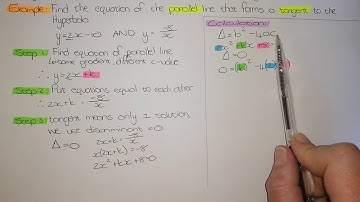 Example: Find the equation of the parallel line that forms a tangent to the
Hyperbola
y=2x-10 AND y=-8/x
Step 1: Find equation of parallel line
↳ same gradient, different c-value
∴ y=2x+k
Step 2: Put equations equal to each other
∴ 2x+k=-8/x
Step 3: tangent means only 1 solution,
we use discriminant=0
Δ=0
2x+k=-8/x
x(2x+k)=-8
2x²+kx+8=0
Calculation:
Δ=b²-4ac
2x²+kx+8
Δ=0
0=(k)²-4(